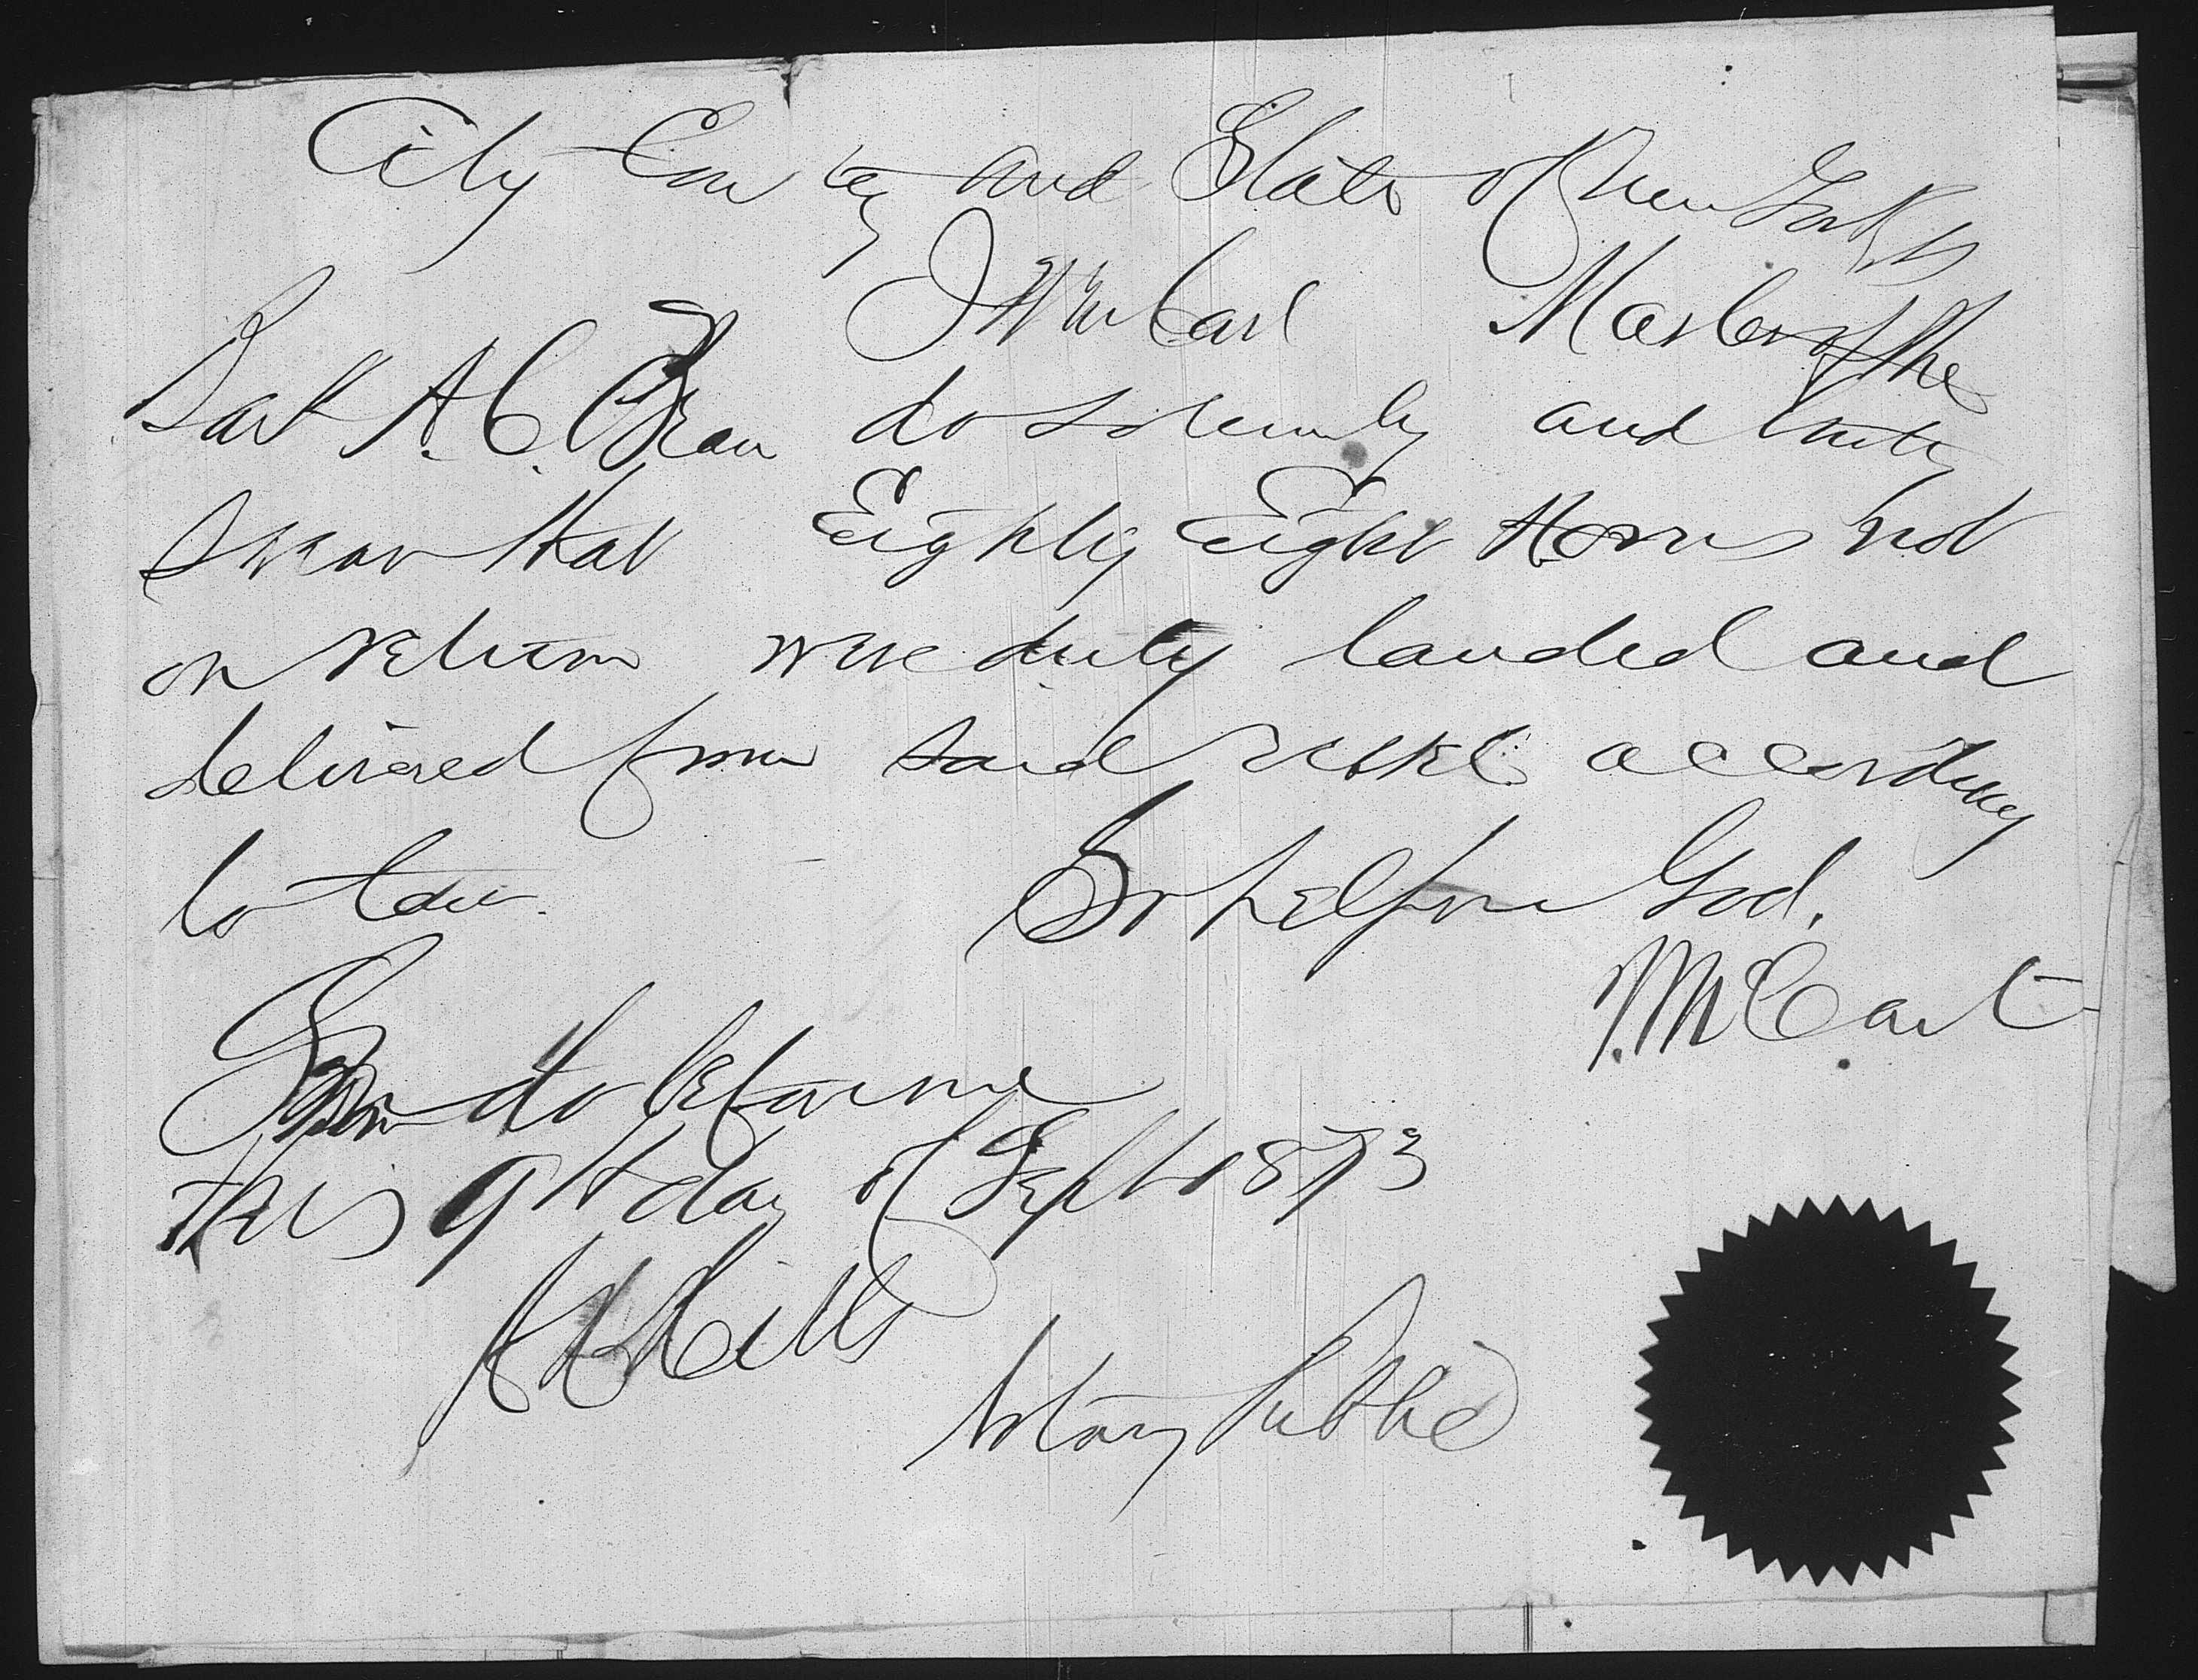 City County and State of New York ss
I Wm Carl Master of the
Bark A. C. Bean do solemnly and truly
swear that Eighty Eight Horns not
on return were duly landed and
delivered from said vessel according
to law. So help me God.
Wm Carl
Sworn to before me
this 9th day of Sept 1873
Mills
Notary Public